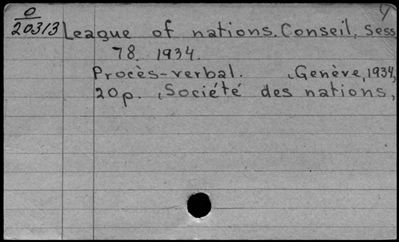 O
20313 League of nations. Conseil, Sess
78. 1934.
Procès-verbal. Genève, 1934,
20p. Société des nations,